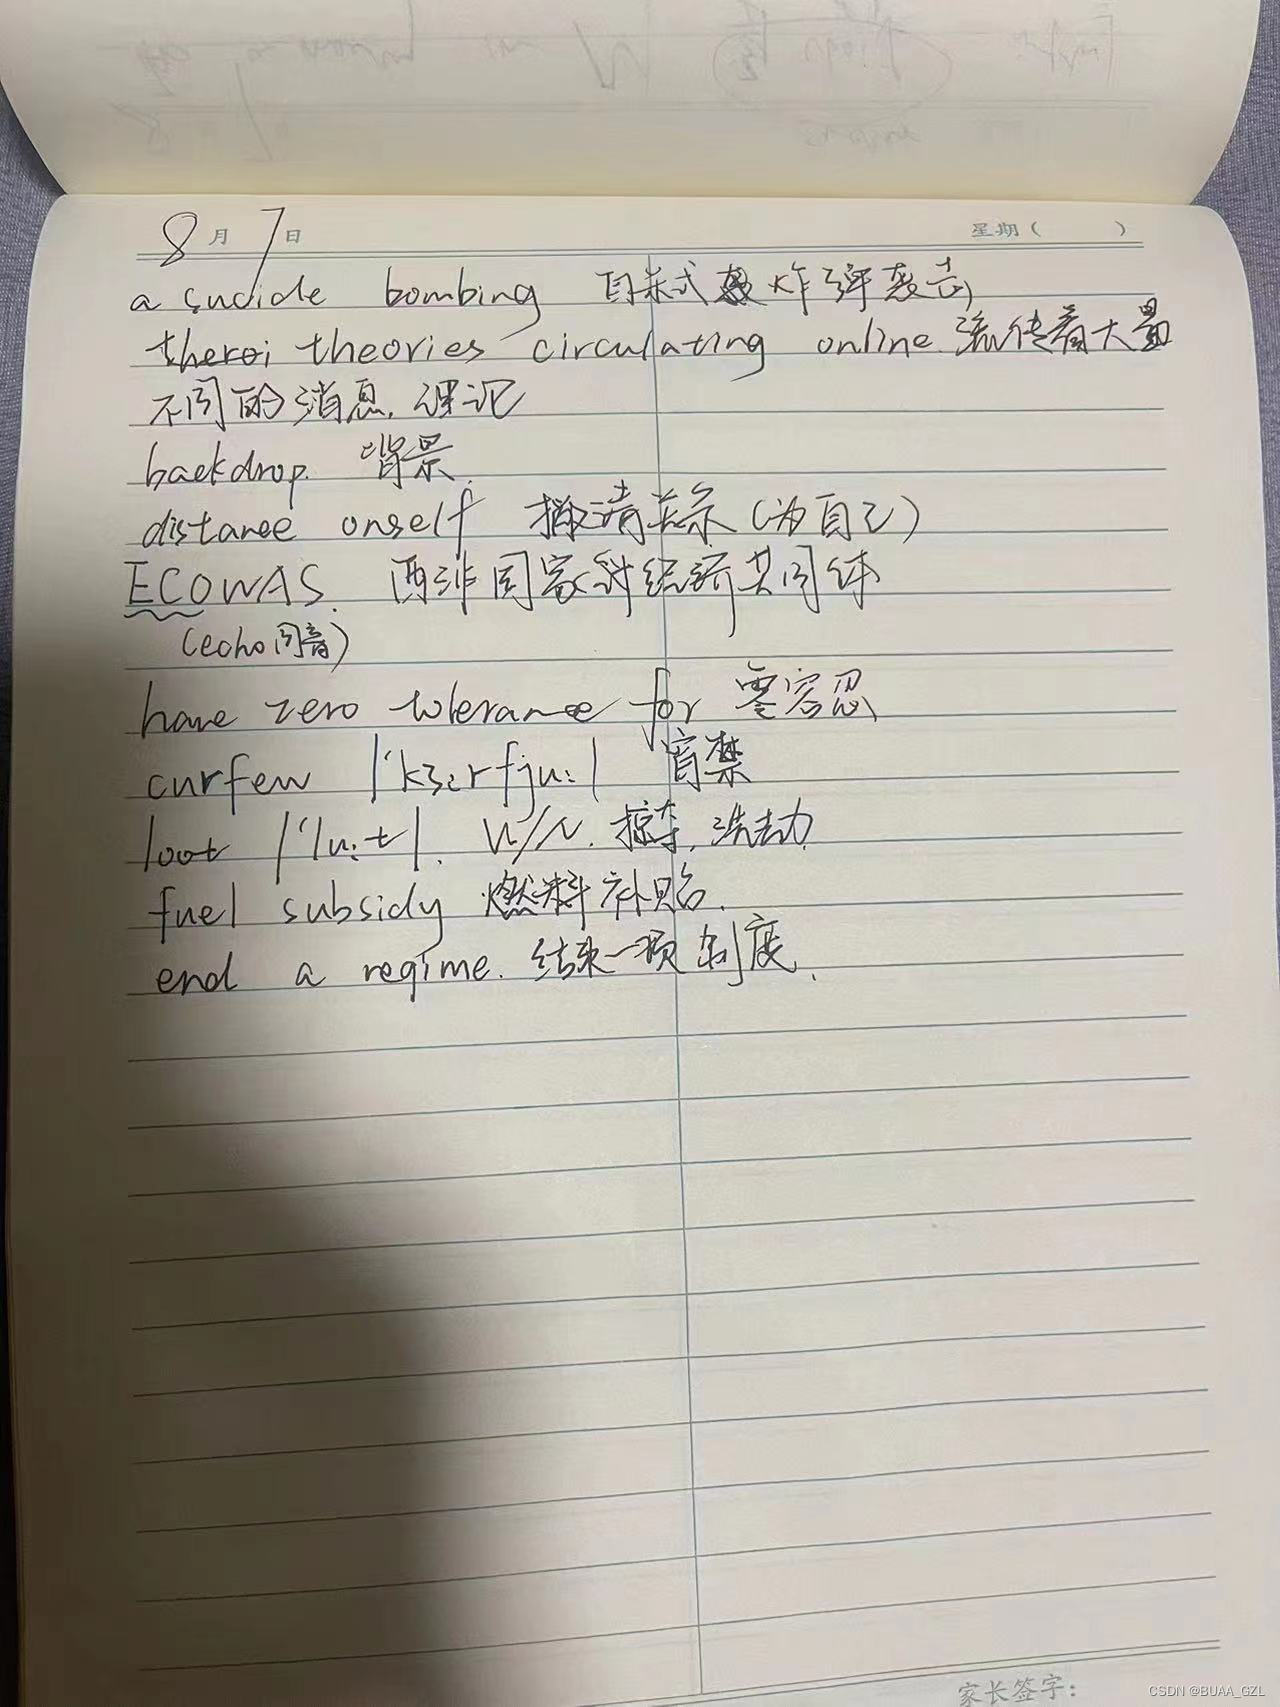 8月7日 星期( )
a sucide bombing 自杀式炸弹袭击
theroi theories circulating online. 流传着大量
不同的消息, 理论
backdrop. 背景.
distance onself 撇清关系 (为自己)
ECOWAS. 西非国家经济共同体
(echo同音)
have zero tolerance for 零容忍
curfew |'kɜːrfjuː| 宵禁
loot |'luːt|. V/N. 掠夺, 洗劫.
fuel subsidy 燃料补贴.
end a regime. 结束一项制度.
家长签字:
CSDN @BUAA_GZL